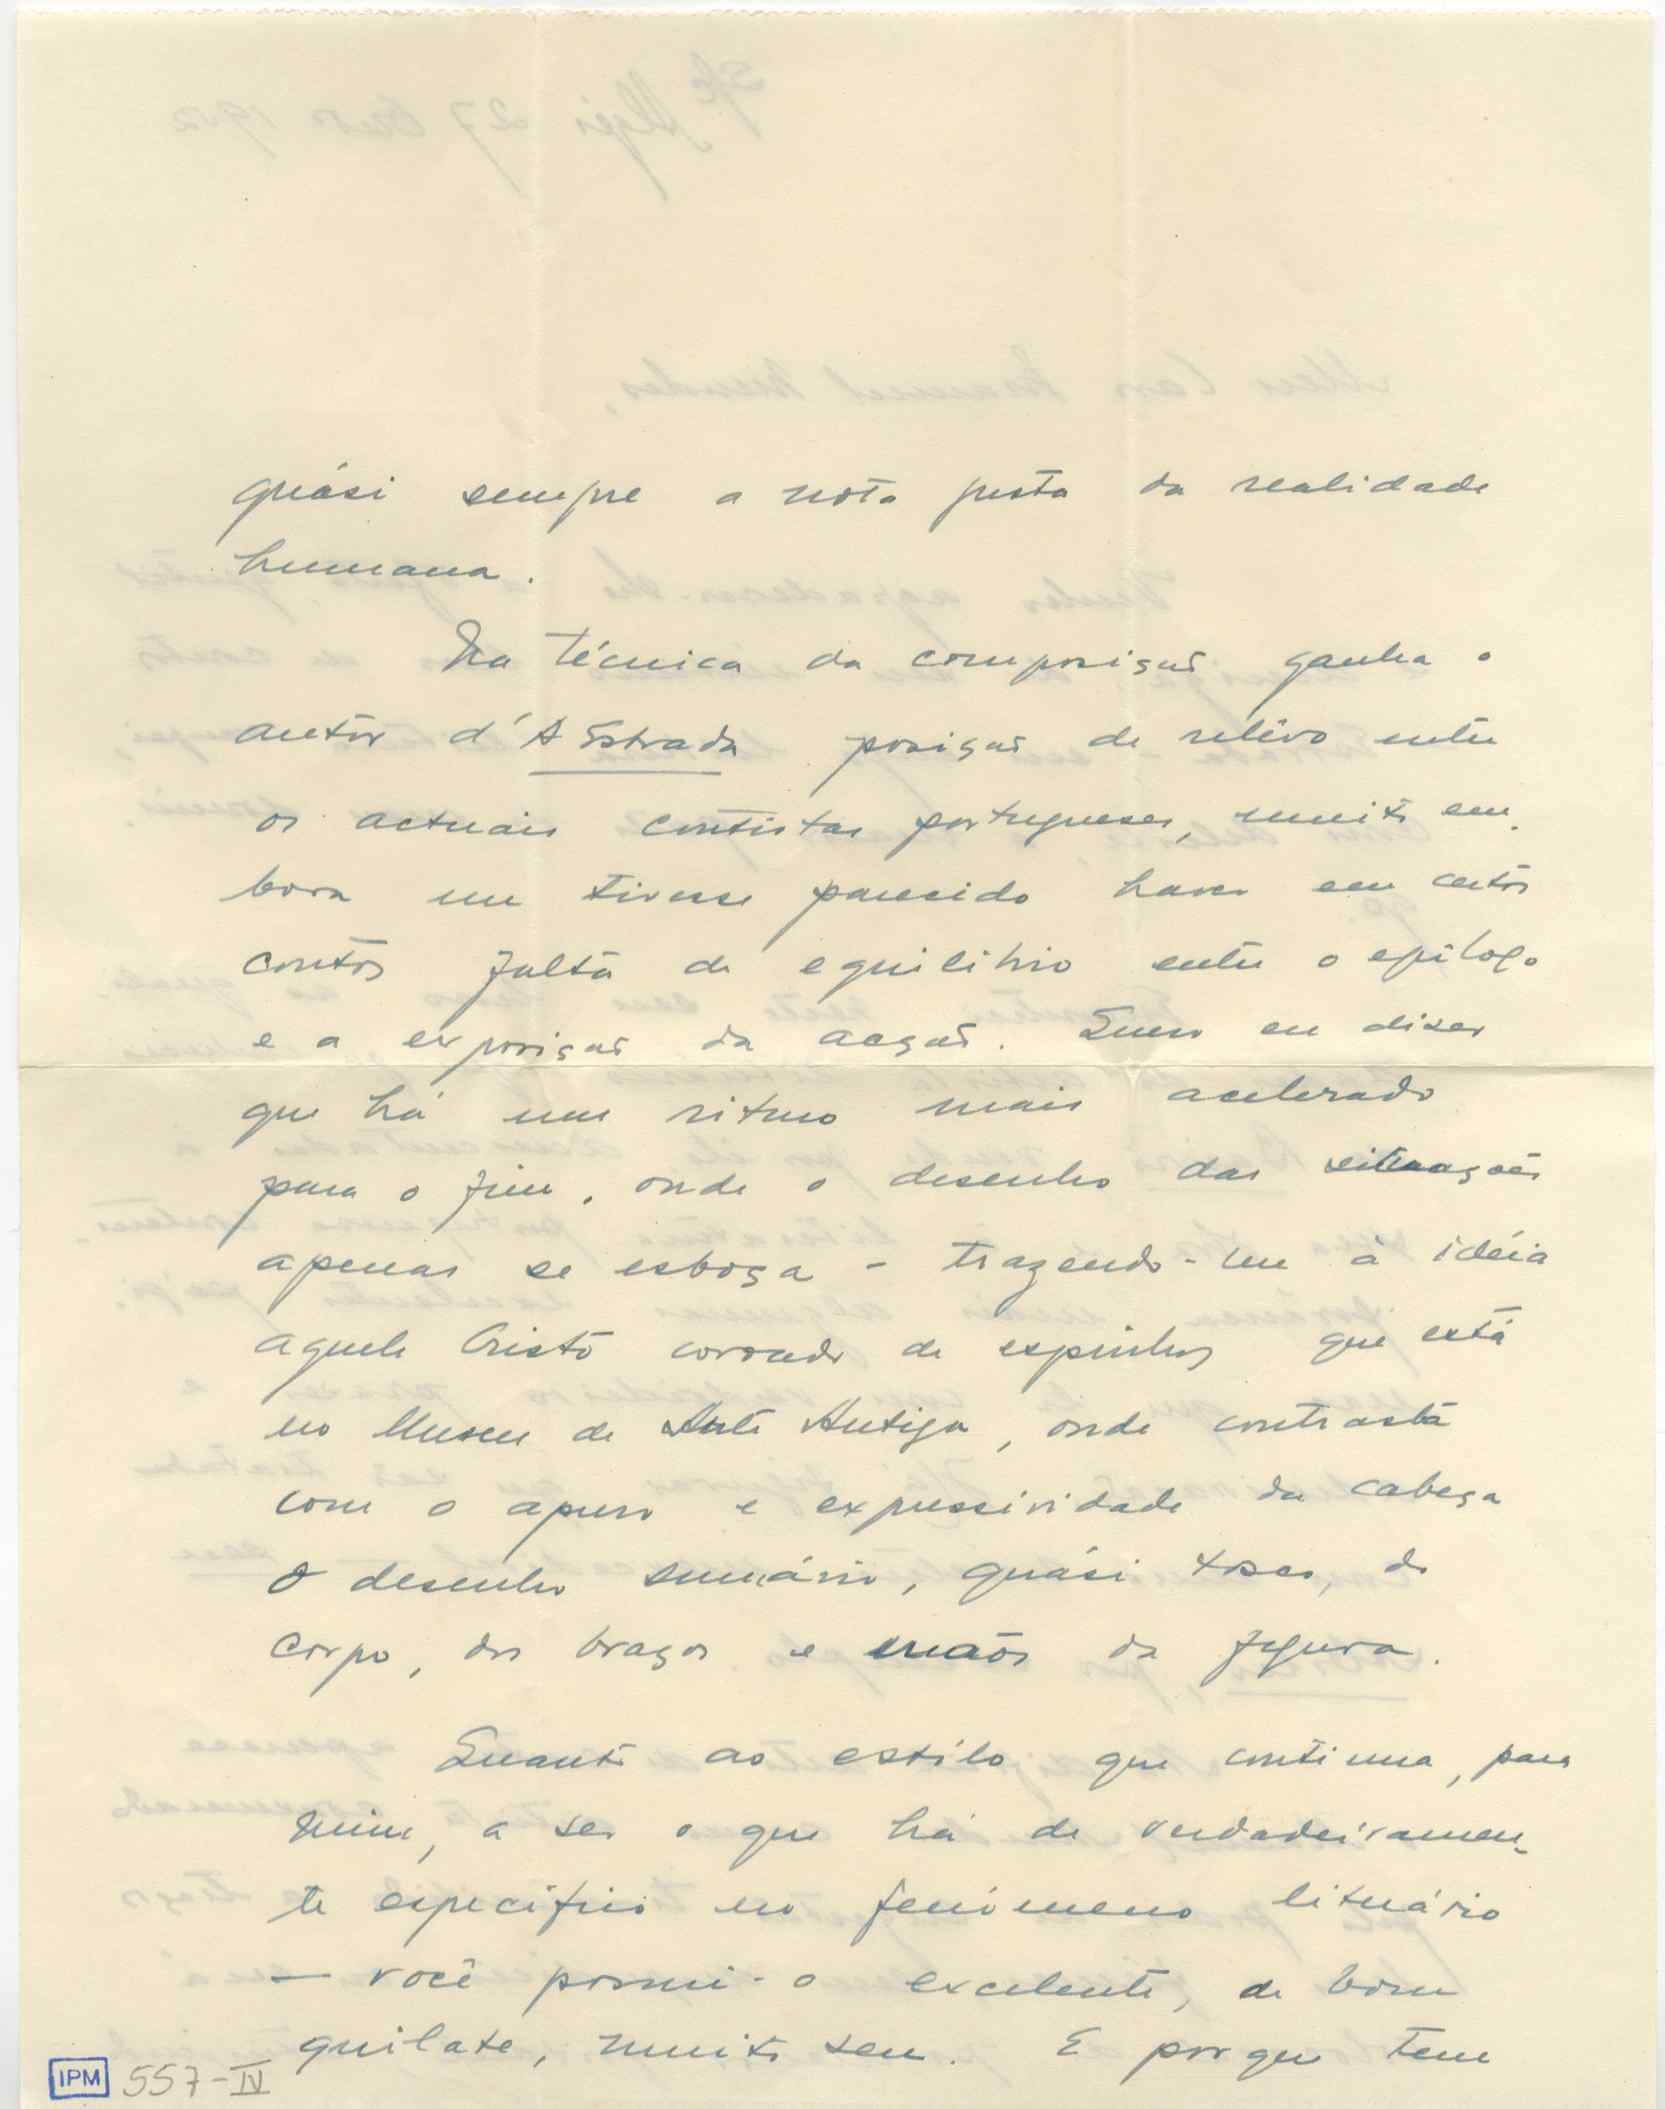 quási sempre a nota justa da realidade
humana.
Na técnica da composição ganha o
autôr d'A Estrada posição de relêvo entre
os actuais contistas portugueses, muito em-
bora me tivesse parecido haver em certos
contos falta de equilibrio entre o epílogo
e a exposição da acção. Quero eu dizer
que há um ritmo mais acelerado
para o fim, onde o desenho das situações
apenas se esboça - trazendo-me à idéia
aquele Cristo coroado de espinhos que está
no Museu de Arte Antiga, onde contrasta
com o apuro e expressividade da cabeça
o desenho sumário, quási tosco, do
corpo, dos braços e mãos da figura.
Quanto ao estilo que continua, para
mim, a ser o que há de verdadeiramen-
te específico no fenómeno literário
— você possui-o excelente, de bom
quilate, muito seu. E porque tem
IPM 557-IV